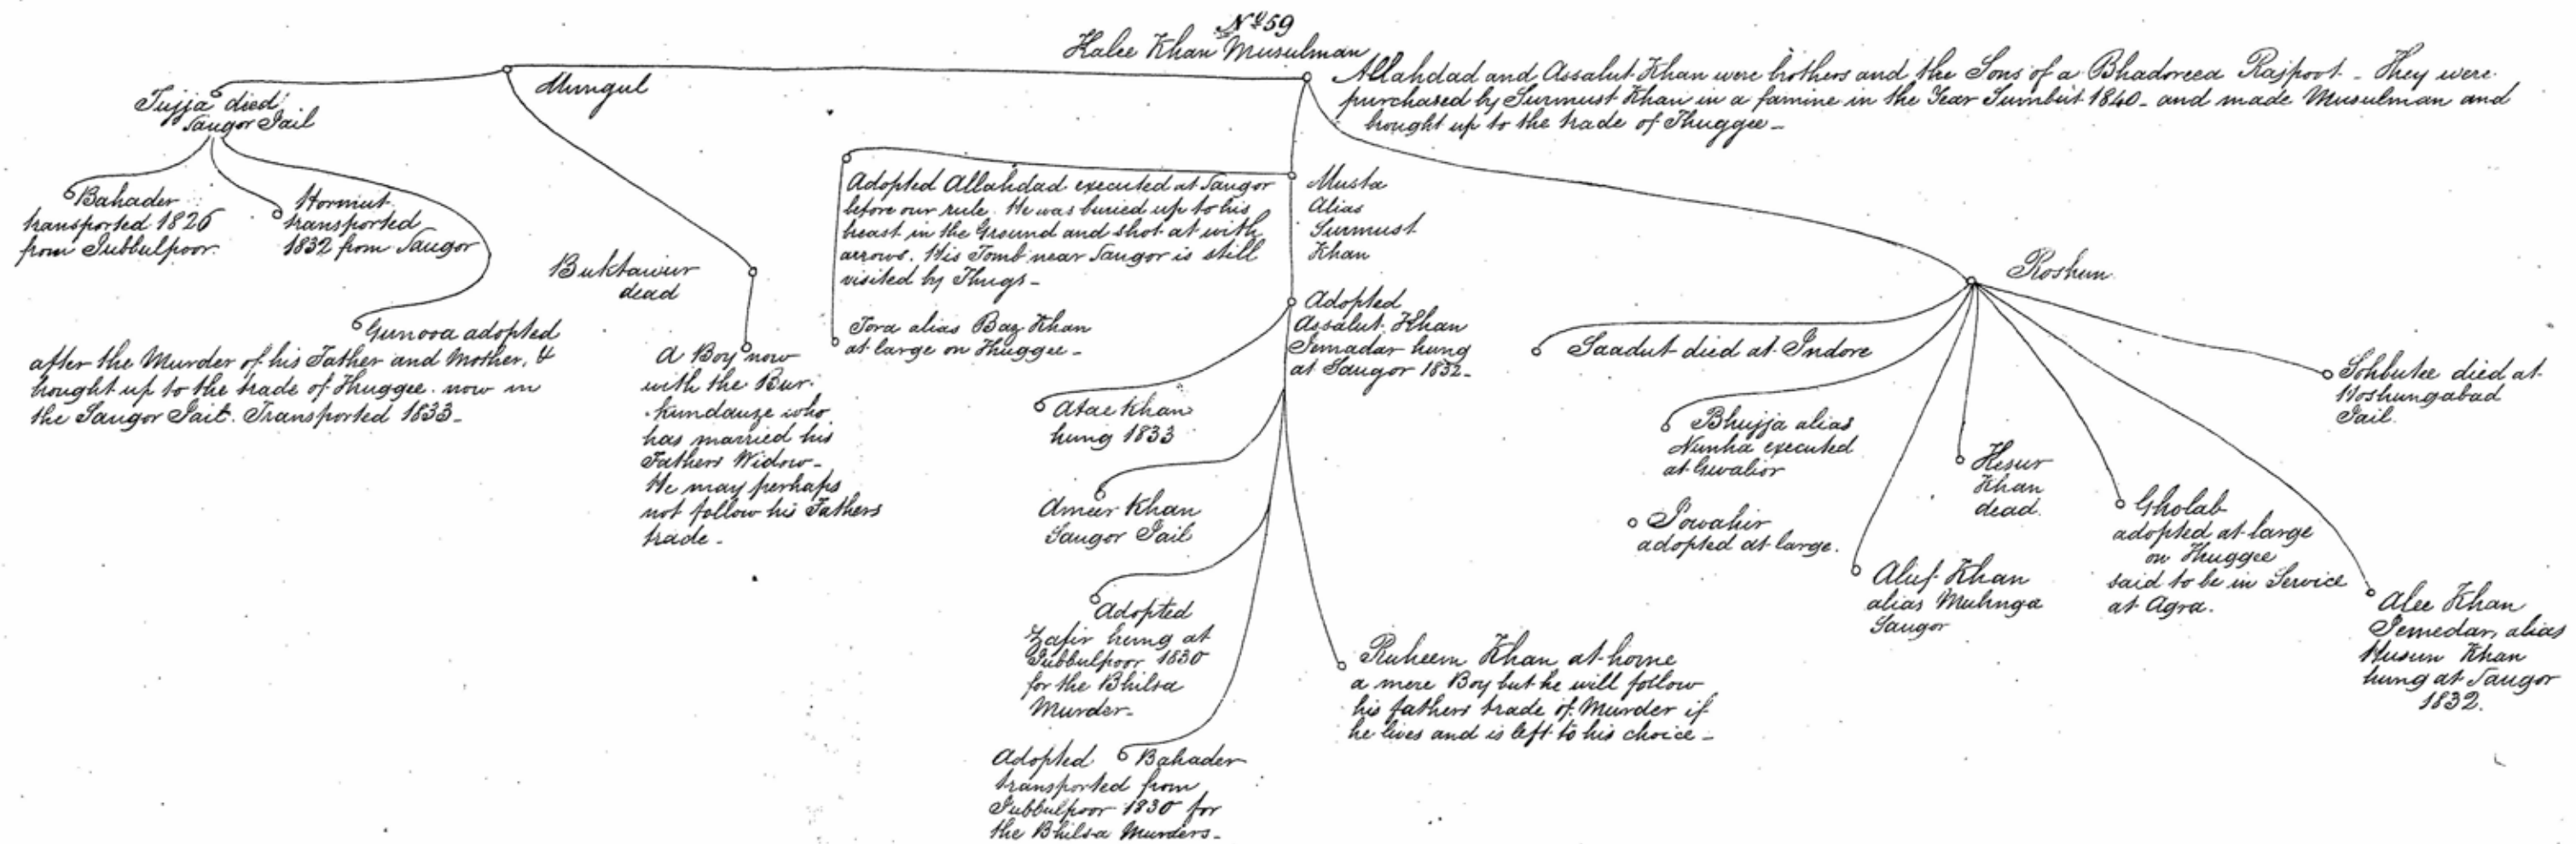 No. 59
Kalee Khan Musulman
Allahdad and Assalut Khan were brothers and the Sons of a Bhadoreea Rajpoot - They were
purchased by Surmust Khan in a famine in the Year Sumbut 1840 - and made Musulman and
brought up to the trade of Thuggee -
Mungul
Tujja died
Saugor Jail
Bahader
transported 1826
from Jubbulpoor.
Hormut
transported
1832 from Saugor
Gunooa adopted
after the Murder of his Father and Mother, &
brought up to the trade of Thuggee. now in
the Saugor Jail. Transported 1833 -
Buktawur
dead
A Boy now
with the Bur-
kundauze who
has married his
Fathers Widow -
He may perhaps
not follow his Fathers
trade -
Adopted Allahdad executed at Saugor
before our rule. He was buried up to his
breast in the Ground and shot at with
arrows. His Tomb near Saugor is still
visited by Thugs -
Tora alias Baz Khan
at large on Thuggee -
Musta
Alias
Surmust
Khan
Adopted
Assalut Khan
Jemadar hung
at Saugor 1832 -
Atae Khan
hung 1833
Ameer Khan
Saugor Jail
Adopted
Zafir hung at
Jubbulpoor 1830
for the Bhilsa
Murder -
Adopted Bahader
transported from
Jubbulpoor 1830 for
the Bhilsa Murders -
Ruheem Khan at home
a mere Boy but he will follow
his fathers trade of Murder if
he lives and is left to his choice -
Roshun
Saadut died at Indore
Bhujja alias
Nunha executed
at Gwalior
Jowahir
adopted at large.
Aluf Khan
alias Muhnga
Saugor
Kesur
Khan
dead.
Gholab
adopted at large
on Thuggee
said to be in Service
at Agra.
Alee Khan
Jemedar, alias
Husun Khan
hung at Saugor
1832.
Sohbutee died at
Hoshungabad
Jail.